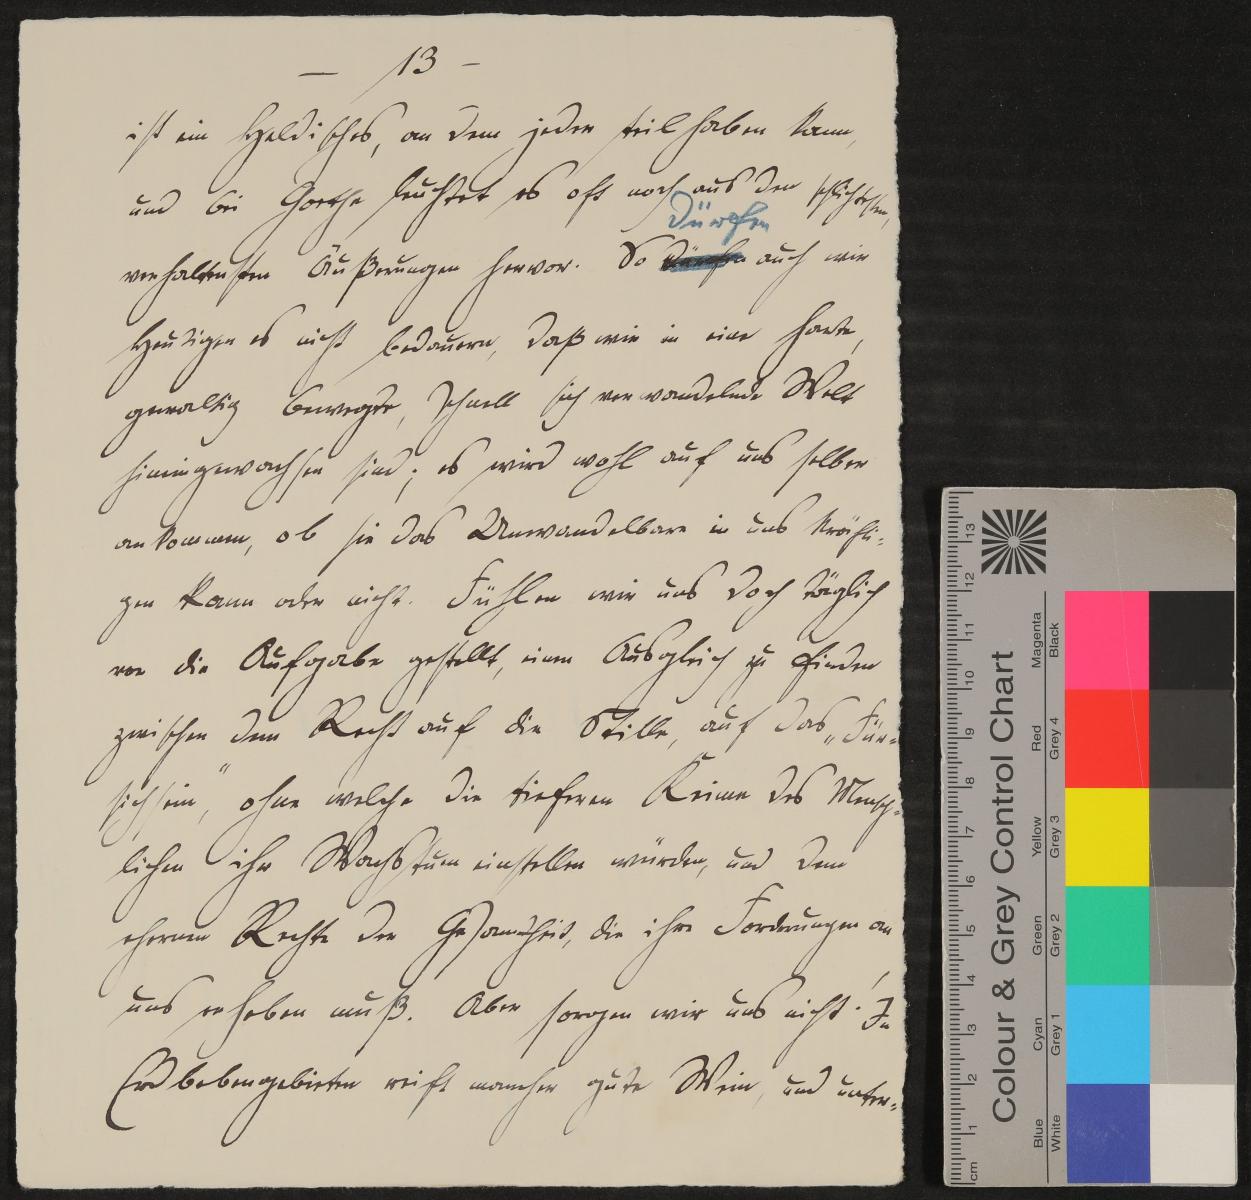 — 13 —
ist ein Heldisches, an dem jeder teil haben kann,
und bei Goethe leuchtet es oft noch aus den schlichtesten,
dürfen
verhaltensten Äußerungen hervor. So dürfen auch wir
Heutigen es nicht bedauern, daß wir in eine harte,
gewaltig bewegte, schnell sich verwandelnde Welt
hineingewachsen sind; es wird wohl auf uns selber
ankommen, ob sie das Unwandelbare in uns kräfti-
gen kann oder nicht. Fühlen wir uns doch täglich
vor die Aufgabe gestellt, einen Ausgleich zu finden
zwischen dem Recht auf die Stille, auf das „Für-
sichsein“, ohne welche die tieferen Keime des Mensch-
lichen ihr Wachstum einstellen würden, und dem
ehernen Rechte der Gesamtheit, die ihre Forderungen an
uns erheben muß. Aber sorgen wir uns nicht! In
Erdbebengebieten reift mancher gute Wein, und unter-
Colour & Grey Control Chart
Blue Cyan Green Yellow Red Magenta
White Grey 1 Grey 2 Grey 3 Grey 4 Black
cm 1 2 3 4 5 6 7 8 9 10 11 12 13